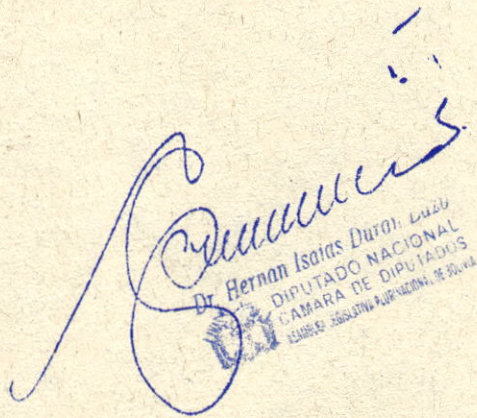 Dr. Hernan Isaias Duran
DIPUTADO NACIONAL
CAMARA DE DIPUTADOS
ASAMBLEA LEGISLATIVA PLURINACIONAL DE BOLIVIA